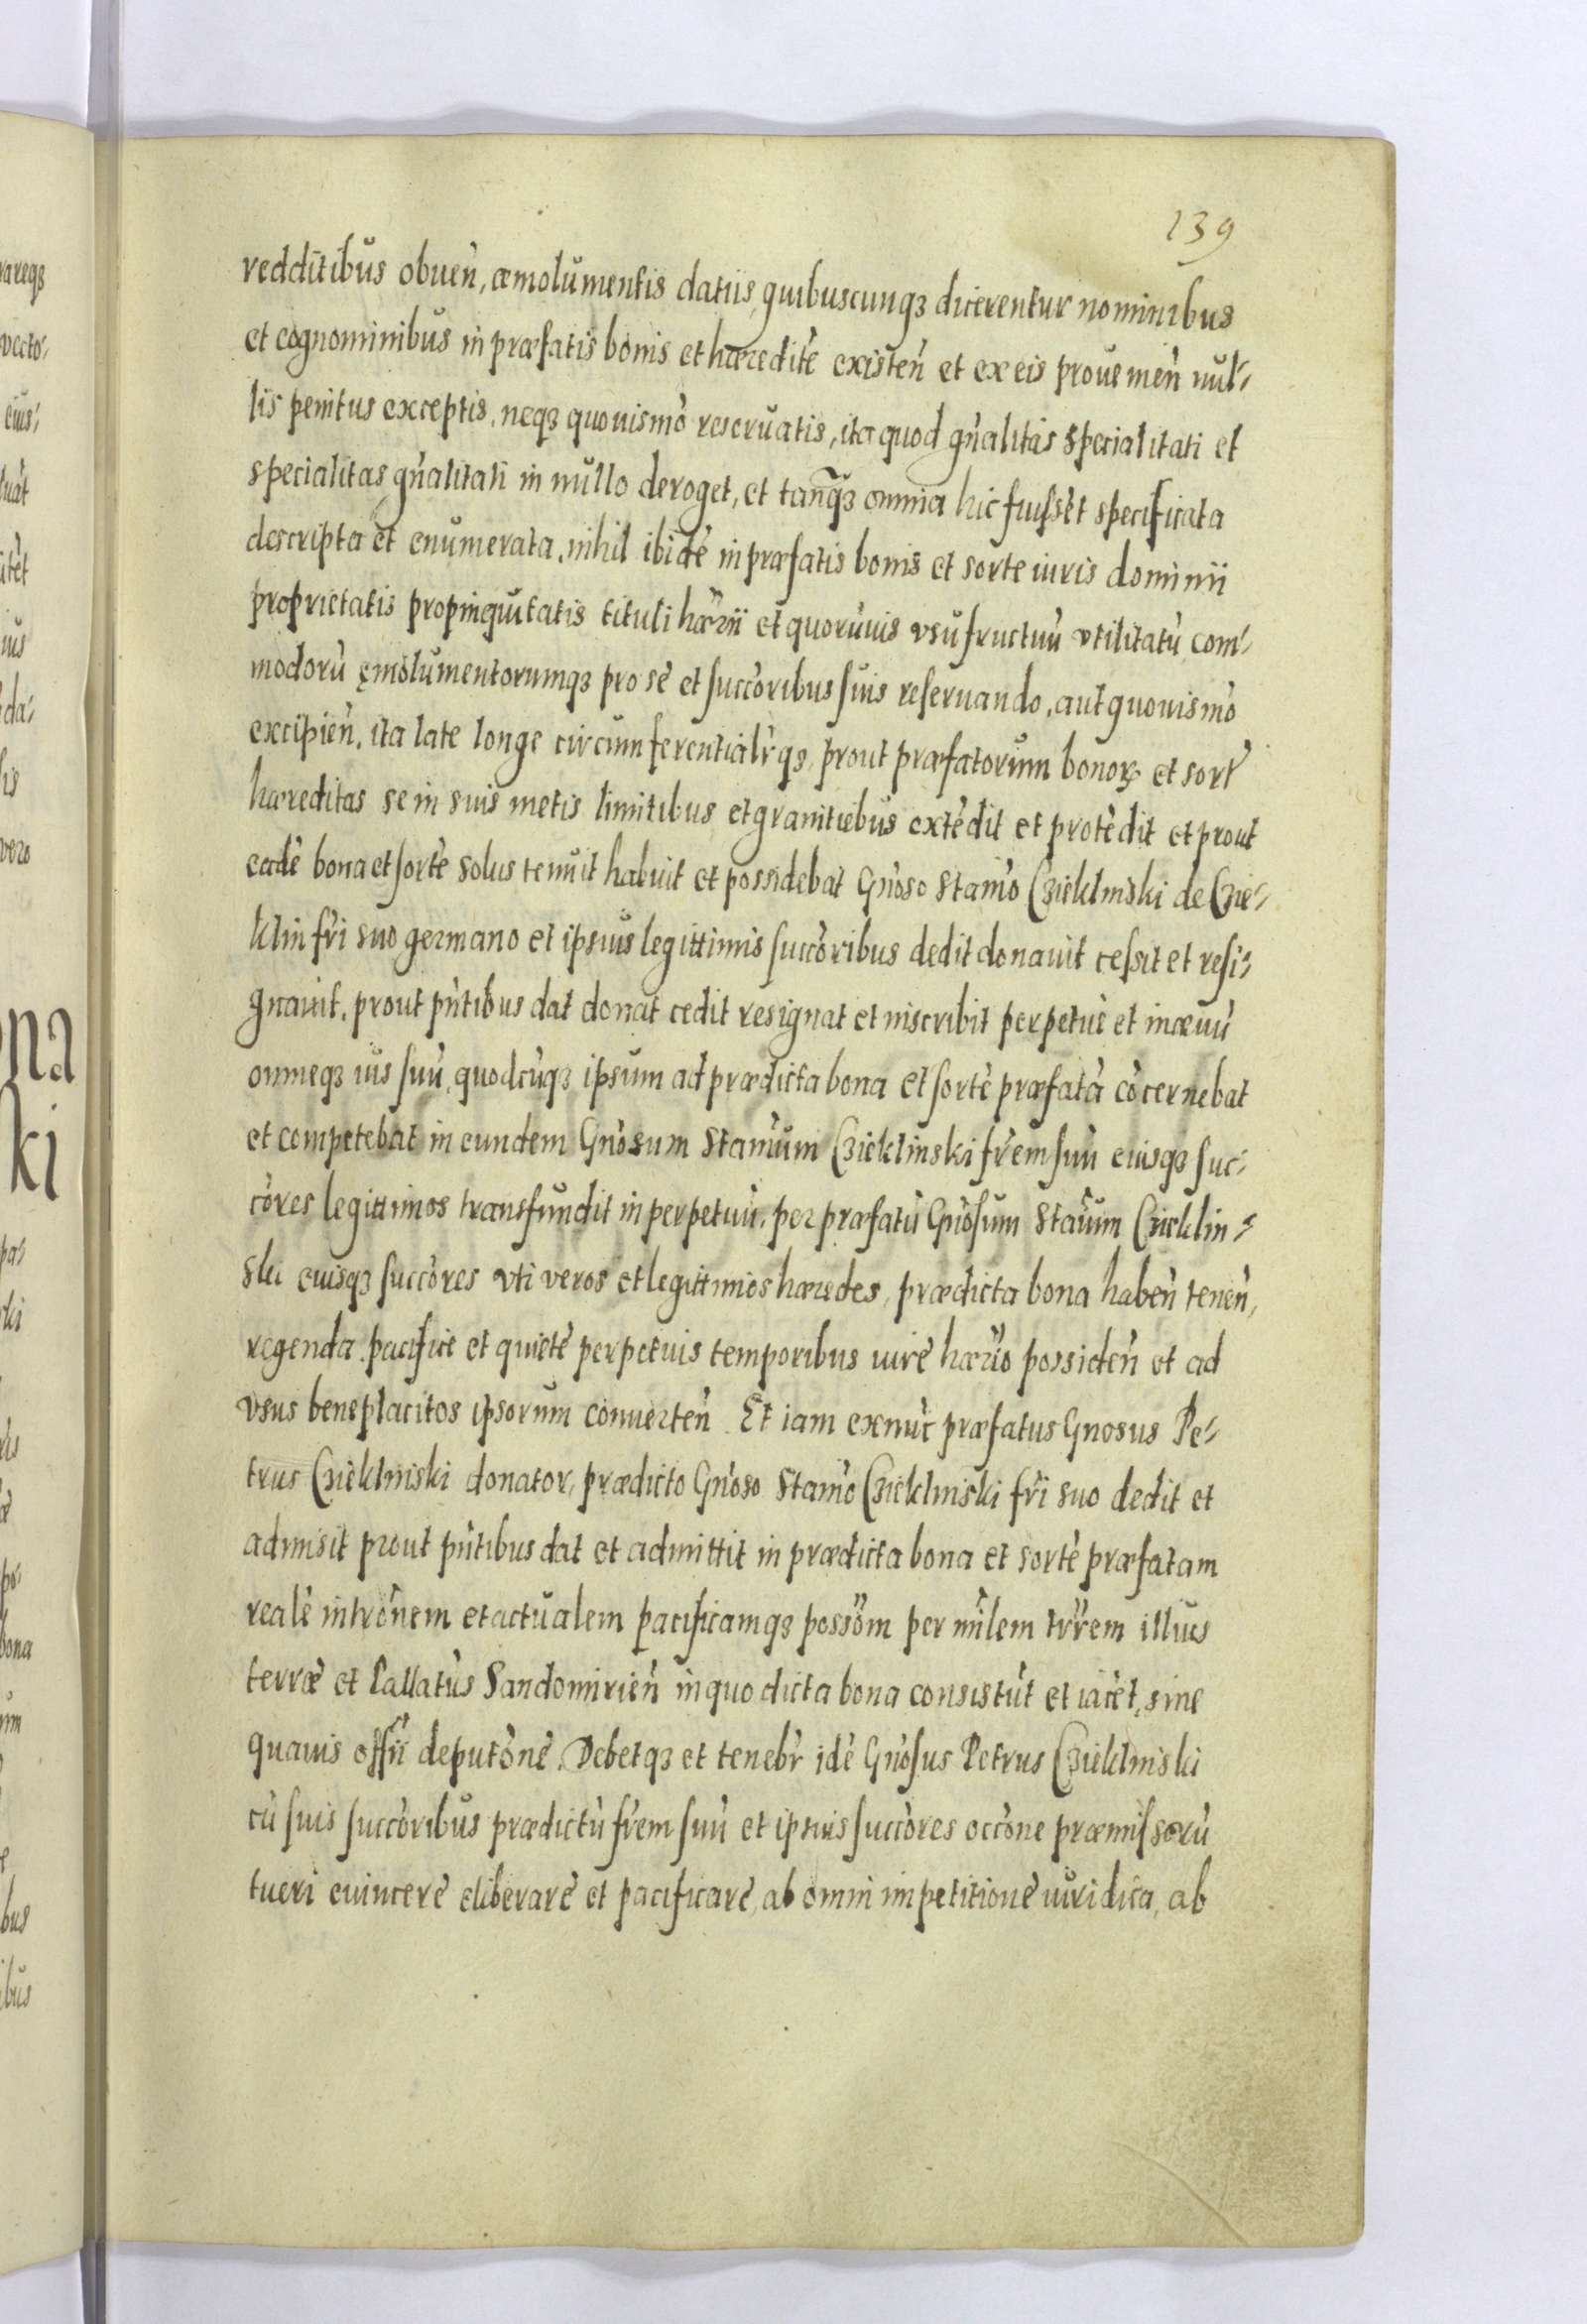 139
redditibus obuen̄, æmolumentis datiis, quibuscunqꝫ dicerentur nominibus
et cognominibus in præfatis bonis et hæreditē existen̄ et ex eis prouenien̄ nul-
lis penitus exceptis, neqꝫ quouismō reseruatis, ita quod gn̄alitas specialitati et
specialitas gn̄alitati in nullo deroget, et tanq̃ꝫ omnia hic fuissēt specificata
descripta et enumerata, nihil ibidē in præfatis bonis et sorte iuris dominii
proprietatis propinquitatis tituli hær̄ii et quorūuis vsufructuū vtilitatū com-
modorū ęmolumentorumqꝫ pro se et succōribus suis reseruando, aut quouismō
excipien̄, ita late longe circumferentialr̄qꝫ, prout præfatorum bonorꝝ et sort̄
hæreditas se in suis metis limitibus et granitiebus extēdit et protēdit et prout
eadē bona et sortē solus tenuit habuit et possidebat Gn̄oso Stan̄o Czieklinski de Czie-
klin fr̄i suo germano et ipsius legittimis succōribus dedit donauit cessit et resi-
gnauit, prout pn̄tibus dat donat cedit resignat et inscribit perpetuē et in æuū
omneqꝫ ius suū, quodcūqꝫ ipsum ad prædicta bona et sortē præfatā cōcernebat
et competebat in eundem Gn̄osum Stan̄um Czieklinski fr̄em suū eiusqꝫ suc-
cōres legittimos transfundit in perpetuū, per præfatū Gn̄osum Stan̄um Czieklin-
ski eiusqꝫ succōres vti veros et legittimos hæredes, prædicta bona haben̄ tenen̄,
regenda pacifice et quietē perpetuis temporibus iure hær̄io possiden̄ et ad
vsus beneplacitos ipsorum conuerten̄. Et iam exnūc præfatus Gnosus Pe-
trus Czieklinski donator, prædicto Gn̄oso Stan̄o Czieklinski fr̄i suo dedit et
admisit prout pn̄tibus dat et admittit in prædicta bona et sortē præfatam
realē intrōnem et actualem pacificamqꝫ possōm per mīlem trr̄em illius
terræ et Pallatūs Sandomirien̄ in quo dicta bona consistūt et iacēt, sine
quauis offīi deputōne. Debetqꝫ et tenebr̄ idē Gn̄osus Petrus Czieklinski
cū suis succōribus prædictū fr̄em suū et ipsius succōres occōne præmissorū
tueri euincere eliberare et pacificare, ab omni impetitione iuridica, ab